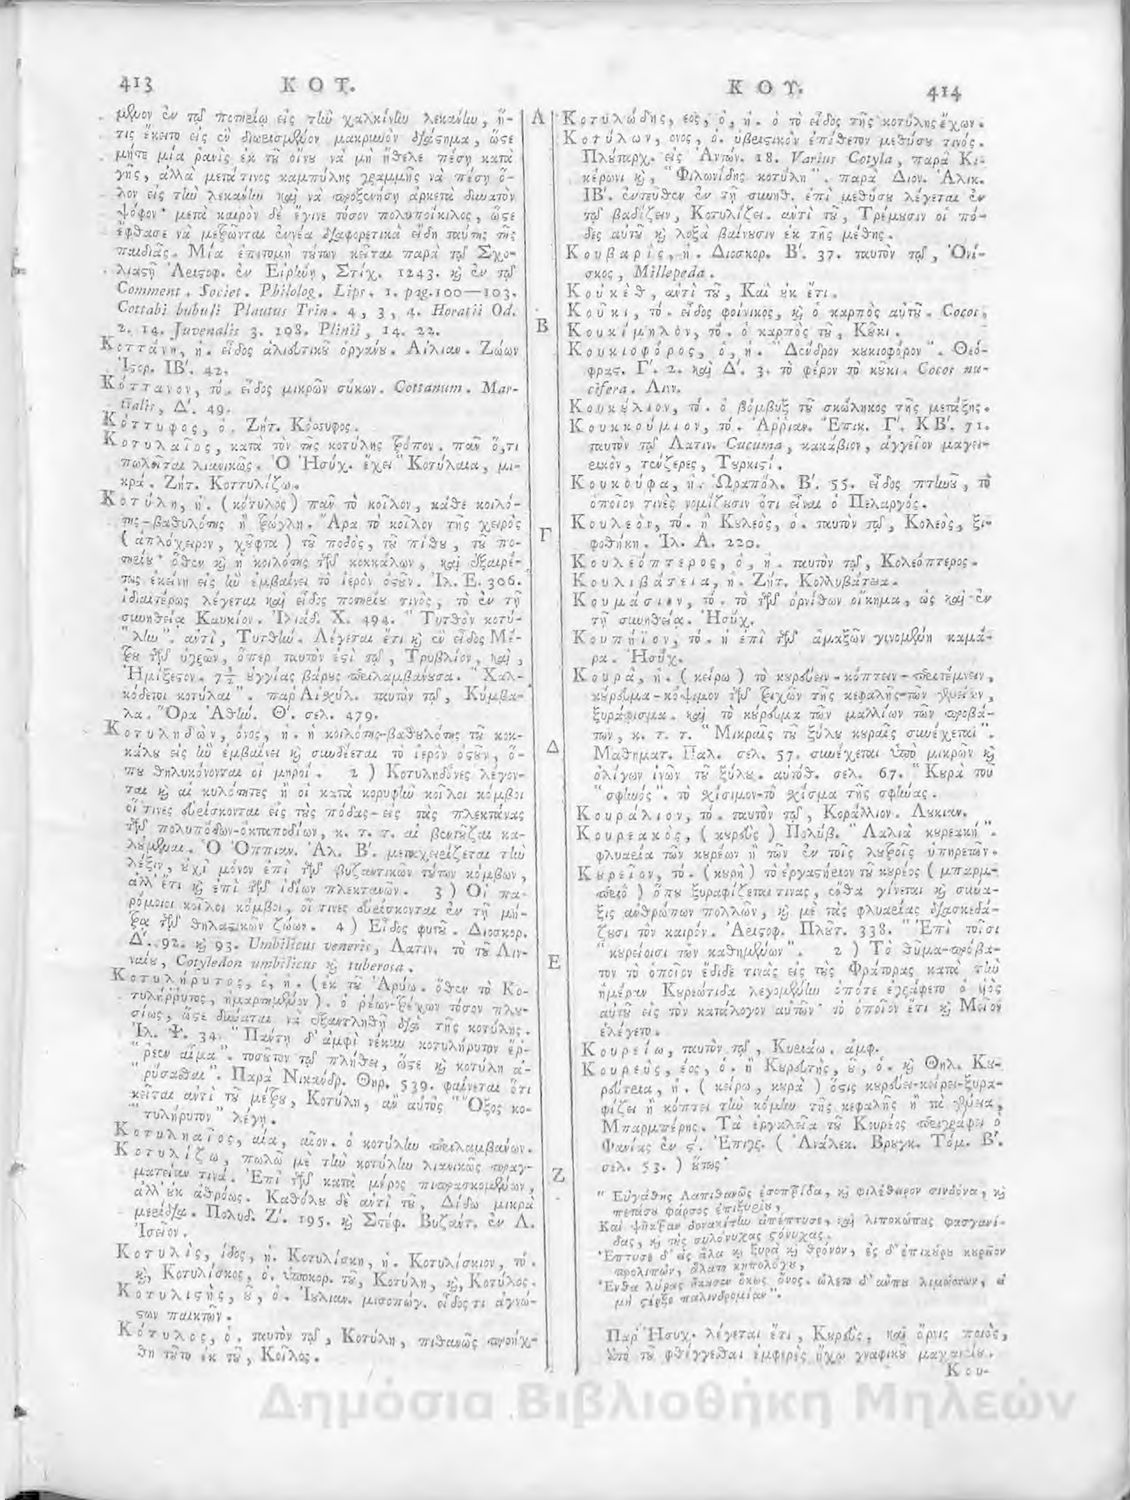 413 ΚΟΤ.
μβμον ἐν τῷ ποτηρίῳ εἰς τὴν χαλκίνην λεκάνην, ἥ-
τις ἔκειτο εἰς ἓν διωρισμένον μακρινὸν διάστημα, ὥστε
μήτε μία ῥανὶς ἐκ τοῦ οἴνου νὰ μὴ ἤθελε πέσῃ κατὰ
γῆς, ἀλλὰ μετά τινος καμπύλης γραμμῆς νὰ πέσῃ ὅ-
λον εἰς τὴν λεκάνην καὶ νὰ προξενήσῃ ἀρκετὰ δυνατὸν
ψόφον· μετὰ καιρὸν δὲ ἔγινε τόσον πολυποίκιλος, ὥστε
ἔφθασε νὰ μετρῶνται ἐννέα διαφορετικὰ εἴδη ταύτης τῆς
παιδιᾶς. Μία ἐπιτομὴ τούτων κεῖται παρὰ τῷ Σχο-
λιαστῇ Ἀριστοφ. ἐν Εἰρήνῃ, Στίχ. 1243. καὶ ἐν τῷ
Comment. Societ. Philolog. Lips. 1. pag. 100—103.
Cottabi bubuli Plautus Trin. 4, 3, 4. Horatii Od.
2. 14. Juvenalis 3. 198. Plinii, 14. 22.
Κοττάνη, ἡ. εἶδος ἁλιευτικοῦ ὀργάνου. Αἰλιαν. Ζώων
Ἱστορ. ΙΒ'. 42.
Κόττανον, τό. εἶδος μικρῶν σύκων. Cottanum. Mar-
tialis, Δ'. 49.
Κόττυφος, ὁ. Ζήτ. Κόσσυφος.
Κοτυλαῖος, κατὰ τὸν τῆς κοτύλης τρόπον. πᾶν ὅ,τι
πωλεῖται λιανικῶς. Ὁ Ἡσύχ. ἔχει "Κοτύλαια, μι-
κρά. Ζήτ. Κοττυλίζω.
Κοτύλη, ἡ. (κότυλος) πᾶν τὸ κοῖλον, κάθε κοιλό-
της-βαθυλότης ἢ τρώγλη. Ἄρα τὸ κοῖλον τῆς χειρὸς
(ἁπλόχειρον, χούφτα) τοῦ ποδὸς, τοῦ πίθου, τοῦ πο-
τηρίου· ὅθεν καὶ ἡ κοιλότης τῶν κοκκάλων, καὶ ἐξαιρέ-
τως ἐκείνη εἰς ἣν ἐμβαίνει τὸ ἱερὸν ὀστοῦν. Ἰλ. Ε. 306.
ἰδιαιτέρως λέγεται καὶ εἶδος ποτηρίου τινὸς, τὸ ἐν τῇ
συνηθείᾳ Καυκίον. Ἰλιάδ. Χ. 494. "Τυτθὸν κοτύ-
"λην". ἀντὶ, Τυτθήν. Λέγεται ἔτι καὶ ἓν εἶδος Μέ-
τρου τῶν ὑγρῶν, ὅπερ ταυτόν ἐστι τῷ, Τρυβλίον, καὶ,
Ἡμίξεστον. 7½ οὐγγίας βάρους περιλαμβάνουσα. "Χαλ-
κόδετοι κοτύλαι". παρ' Αἰσχύλ. ταυτὸν τῷ, Κύμβα-
λα. Ὅρα Ἀθήν. Θ'. σελ. 479.
Κοτυληδὼν, όνος, ἡ. ἡ κοιλότης-βαθυλότης τοῦ κοκ-
κάλου εἰς ἣν ἐμβαίνει καὶ συνδέεται τὸ ἱερὸν ὀστοῦν, ὅ-
που θηλυκόνονται οἱ μηροί. 2) Κοτυληδόνες λέγον-
ται καὶ αἱ κυλότητες ἢ οἱ κατὰ κορυφὴν κοῖλοι κόμβοι
οἵ τινες εὑρίσκονται εἰς τοὺς πόδας-εἰς τὰς πλεκτάνας
τῶν πολυπόδων-ὀκταποδίων, κ. τ. τ. αἱ βεντοῦζαι κα-
λούμεναι. Ὁ Ὀππιαν. Ἁλ. Β'. μεταχειρίζεται τὴν
λέξιν, οὐχὶ μόνον ἐπὶ τῶν βυζαντικῶν τούτων κόμβων,
ἀλλ' ἔτι καὶ ἐπὶ τῶν ἰδίων πλεκτανῶν. 3) Οἱ πα-
ρόμοιοι κοῖλοι κόμβοι, οἵ τινες εὑρίσκονται ἐν τῇ μή-
τρᾳ τῶν θηλαστικῶν ζώων. 4) Εἶδος φυτοῦ. Διοσκορ.
Δ'. 92. καὶ 93. Umbilicus veneris, Λατιν. τὸ τοῦ Λιν-
ναίου, Cotyledon umbilicus καὶ tuberosa.
Κοτυλήρυτος, ὁ, ἡ. (ἐκ τοῦ Ἀρύω. ὅθεν τὸ Κο-
τυλήρρυτος, ἡμαρτημένον). ὁ ῥέων-τρέχων τόσον πλου-
σίως, ὥστε δύναται νὰ ἐξαντληθῇ διὰ τῆς κοτύλης.
Ἰλ. Ψ. 34. "Πάντῃ δ' ἀμφὶ νέκυν κοτυλήρυτον ἔρ-
"ρεεν αἷμα". τοσοῦτον τῷ πλήθει, ὥστε καὶ κοτύλῃ ἀ-
"ρύσασθαι". Παρὰ Νικάνδρ. Θηρ. 539. φαίνεται ὅτι
κεῖται ἀντὶ τοῦ μέτρου, Κοτύλη, ἂν αὐτὸς "Ὄξος κο-
"τυλήρυτον" λέγῃ.
Κοτυλιαῖος, αία, αῖον. ὁ κοτύλην περιλαμβάνων.
Κοτυλίζω, πωλῶ μὲ τὴν κοτύλην λιανικῶς πραγ-
ματείαν τινά. Ἐπὶ τῶν κατὰ μέρος πιπρασκομένων,
ἀλλ' οὐκ ἀθρόως. Καθόλου δὲ ἀντὶ τοῦ, Δίδω μικρὰ
μερίδια. Πολυδ. Ζ'. 195. καὶ Στέφ. Βυζαντ. ἐν Λ.
Ἰσεῖον.
Κοτυλὶς, ίδος, ἡ. Κοτυλίσκη, ἡ. Κοτυλίσκιον, τό.
καὶ, Κοτυλίσκος, ὁ. ὑποκορ. τοῦ, Κοτύλη, καὶ, Κοτύλος.
Κοτυλιστὴς, οῦ, ὁ. Ἰουλιαν. μισοπώγ. εἶδός τι ἀγνώ-
στων παικτῶν.
Κότυλος, ὁ. ταυτὸν τῷ, Κοτύλη, πιθανῶς προήχ-
θη τοῦτο ἐκ τοῦ, Κοῖλος.
Α
Β
Γ
Δ
Ε
Ζ
ΚΟΥ. 414
Κοτυλώδης, εος, ὁ, ἡ. ὁ τὸ εἶδος τῆς κοτύλης ἔχων.
Κοτύλων, ονος, ὁ. ὑβριστικὸν ἐπίθετον μεθύσου τινός.
Πλούταρχ. εἰς Ἀντών. 18. Varius Cotyla, παρὰ Κι-
κέρωνι καὶ, "Φιλωνίδης κοτύλη". παρὰ Διον. Ἁλικ.
ΙΒ'. ἐντεῦθεν ἐν τῇ συνηθ. ἐπὶ μεθύσου λέγεται ἐν
τῷ βαδίζειν, Κοτυλίζει. ἀντὶ τοῦ, Τρέμουσιν οἱ πό-
δες αὐτοῦ καὶ λοξὰ βαίνουσιν ἐκ τῆς μέθης.
Κουβαρὶς, ἡ. Διοσκορ. Β'. 37. ταυτὸν τῷ, Ὀνί-
σκος, Millepeda.
Κοὐκέθ, ἀντὶ τοῦ, Καὶ οὐκ ἔτι.
Κοῦκι, τό. εἶδος φοίνικος, καὶ ὁ καρπὸς αὐτοῦ. Cocos.
Κουκίμηλον, τό. ὁ καρπὸς τοῦ, Κοῦκι.
Κουκιοφόρος, ὁ, ἡ. "Δένδρον κουκιοφόρον". Θεό-
φραστ. Γ'. 2. καὶ Δ'. 3. τὸ φέρον τὸ κοῦκι. Cocor nu-
cifera. Λιν.
Κουκούλιον, τό. ὁ βόμβυξ τοῦ σκώληκος τῆς μετάξης.
Κουκκούμιον, τό. Ἀρριαν. Ἐπικ. Γ'. ΚΒ'. 71.
ταυτὸν τῷ Λατιν. Cucuma, κακάβιον, ἀγγεῖον μαγει-
ρικὸν, τένζερες, Τουρκιστί.
Κουκούφα, ἡ. Ὡραπόλ. Β'. 55. εἶδος πτηνοῦ, τὸ
ὁποῖον τινὲς νομίζουσιν ὅτι εἶναι ὁ Πελαργός.
Κουλεὸν, τό. ἢ Κουλεὸς, ὁ. ταυτὸν τῷ, Κολεὸς, ξι-
φοθήκη. Ἰλ. Α. 220.
Κουλεόπτερος, ὁ, ἡ. ταυτὸν τῷ, Κολεόπτερος.
Κουλιβάτεια, ἡ. Ζήτ. Κολλυβάτεια.
Κουμάσιον, τό. τὸ τῶν ὀρνίθων οἴκημα, ὡς καὶ ἐν
τῇ συνηθείᾳ. Ἡσύχ.
Κουπήϊον, τό. ἡ ἐπὶ τῶν ἁμαξῶν γινομένη καμά-
ρα. Ἡσύχ.
Κουρὰ, ἡ. (κείρω) τὸ κουρεύειν-κόπτειν-περιτέμνειν,
κούρευμα-κόψιμον τῶν τριχῶν τῆς κεφαλῆς-τῶν γενείων,
ξυράφισμα. καὶ τὸ κούρευμα τῶν μαλλίων τῶν προβά-
των, κ. τ. τ. "Μικραῖς τοῦ ξύλου κουραῖς συνέχεται".
Μαθηματ. Παλ. σελ. 57. συνέχεται ὑπὸ μικρῶν καὶ
ὀλίγων ἰνῶν τοῦ ξύλου. αὐτόθ. σελ. 67. "Κουρὰ τοῦ
"σφηνός". τὸ σχίσιμον-τὸ σχίσμα τῆς σφήνας.
Κουράλιον, τό. ταυτὸν τῷ, Κοράλλιον. Λουκιαν.
Κουρεακὸς, (κουρεὺς) Πολύβ. "Λαλιὰ κουρεακή".
φλυαρία τῶν κουρέων ἢ τῶν ἐν τοῖς λουτροῖς ὑπηρετῶν.
Κουρεῖον, τό. (κουρὴ) τὸ ἐργαστήριον τοῦ κουρέος (μπαρμ-
περιὸ) ὅπου ξυραφίζεταί τινας, ἔνθα γίνεται καὶ σύνα-
ξις ἀνθρώπων πολλῶν, καὶ μὲ τὰς φλυαρίας διασκεδά-
ζουσι τὸν καιρόν. Ἀριστοφ. Πλούτ. 338. "Ἐπὶ τοῖσι
"κουρείοισι τῶν καθημένων". 2) Τὸ θῦμα-πρόβα-
τον τὸ ὁποῖον ἔδιδέ τινας εἰς τοὺς Φράτορας κατὰ τὴν
ἡμέραν Κουρεώτιδα λεγομένην ὁπότε ἐγράφετο ὁ υἱὸς
αὐτοῦ εἰς τὸν κατάλογον αὐτῶν· τὸ ὁποῖον ἔτι καὶ Μεῖον
ἐλέγετο.
Κουρείω, ταυτὸν τῷ, Κυριάω. ἀμφ.
Κουρεὺς, έος, ὁ. ἢ Κουρευτὴς, οῦ, ὁ. καὶ Θηλ. Κου-
ρεύτρια, ἡ. (κείρω, κουρὰ) ὅστις κουρεύει-κείρει-ξυρα-
φίζει ἢ κόπτει τὴν κόμην τῆς κεφαλῆς ἢ τὰ γένεια,
Μπαρμπέρης. Τὰ ἐργαλεῖα τοῦ Κουρέος περιγράφει ὁ
Φανίας ἐν ϛ'. Ἐπιγρ. (Ἀνάλεκ. Βρουγκ. Τόμ. Β'.
σελ. 53.) οὕτως·
"Εὐγάθης Λαπιθανῶς ἐσοπτρίδα, καὶ φιλέθειρον σινδόνα, καὶ
πετάσου φάρσος ἐπιξύριον,
Καὶ ψήκτραν δονακῖτιν ἀπέπτυσε, καὶ λιποκώπους φασγανί-
δας, καὶ τοὺς συλόνυχας στόνυχας.
Ἔπτυσε δ' εἰς ἅλα καὶ ξυρὰ καὶ θρόνον, ἐς δ' ἐπικούρου κουρεῖον
προλιπὼν, ἅλατο κηπολόγου,
Ἔνθα λύρας ἤκουεν ὅκως ὄνος. ὤλετο δ' ἄν που λιμώττων, εἰ
μὴ στέρξε παλινδρομίαν".
Παρ' Ἡσύχ. λέγεται ἔτι, Κουρεὺς, καὶ ὄρνις ποιὸς,
ὑπὸ τοῦ φθέγγεσθαι ἐμφερὲς ἤχῳ γναφικοῦ μαχαιρίου.
Κου-
Δημόσια Βιβλιοθήκη Μηλεών